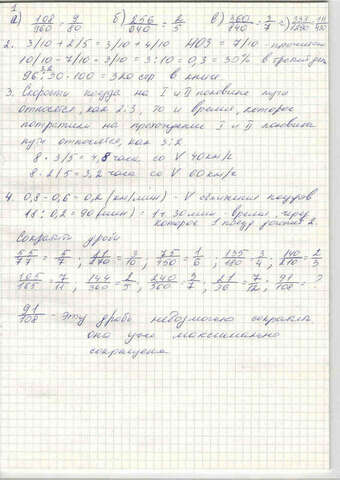 1.
а) 108/960 = 9/80 б) 256/640 = 2/5 в) 360/840 = 3/7
2. 3/10 + 2/5 = 3/10 + 4/10 НОЗ = 7/10 - прочитали
10/10 - 7/10 = 3/10 = 3 : 10 = 0,3 = 30% в третий день
96 : 30 · 100 = 320 стр в книге
3. Скорости поезда на I и II половине пути
относятся, как 2:3, то и время, которое
потратили на прохождение I и II половины
пути относится, как 3:2
8 · 3/5 = 4,8 часа со V 40км/ч
8 · 2/5 = 3,2 часа со V 60км/ч
4. 0,8 - 0,6 = 0,2 (км/мин) - V сближения поездов
18 : 0,2 = 90 (мин) = 1ч 30 мин - время, через
которое 1 поезд догонит 2.
Сократи дроби
55/77 = 5/7 ; = 3/10 ; 75/450 = 1/6 ; 135/180 = 3/4 ; 140/210 = 2/3
105/165 = 7/11 ; 144/360 = 2/5 ; = 3/7 ; 21/36 = 7/12 ; 91/108 = ?
91/108 - эту дробь невозможно сократить
она уже максимально
сокращена